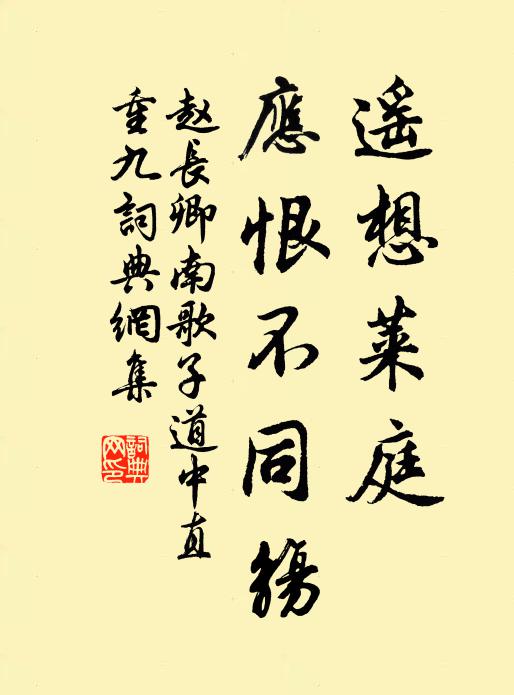 遥想莱庭
應恨不同觴
赵長卿南歌子道中直
重九詞典網集
詞典网印